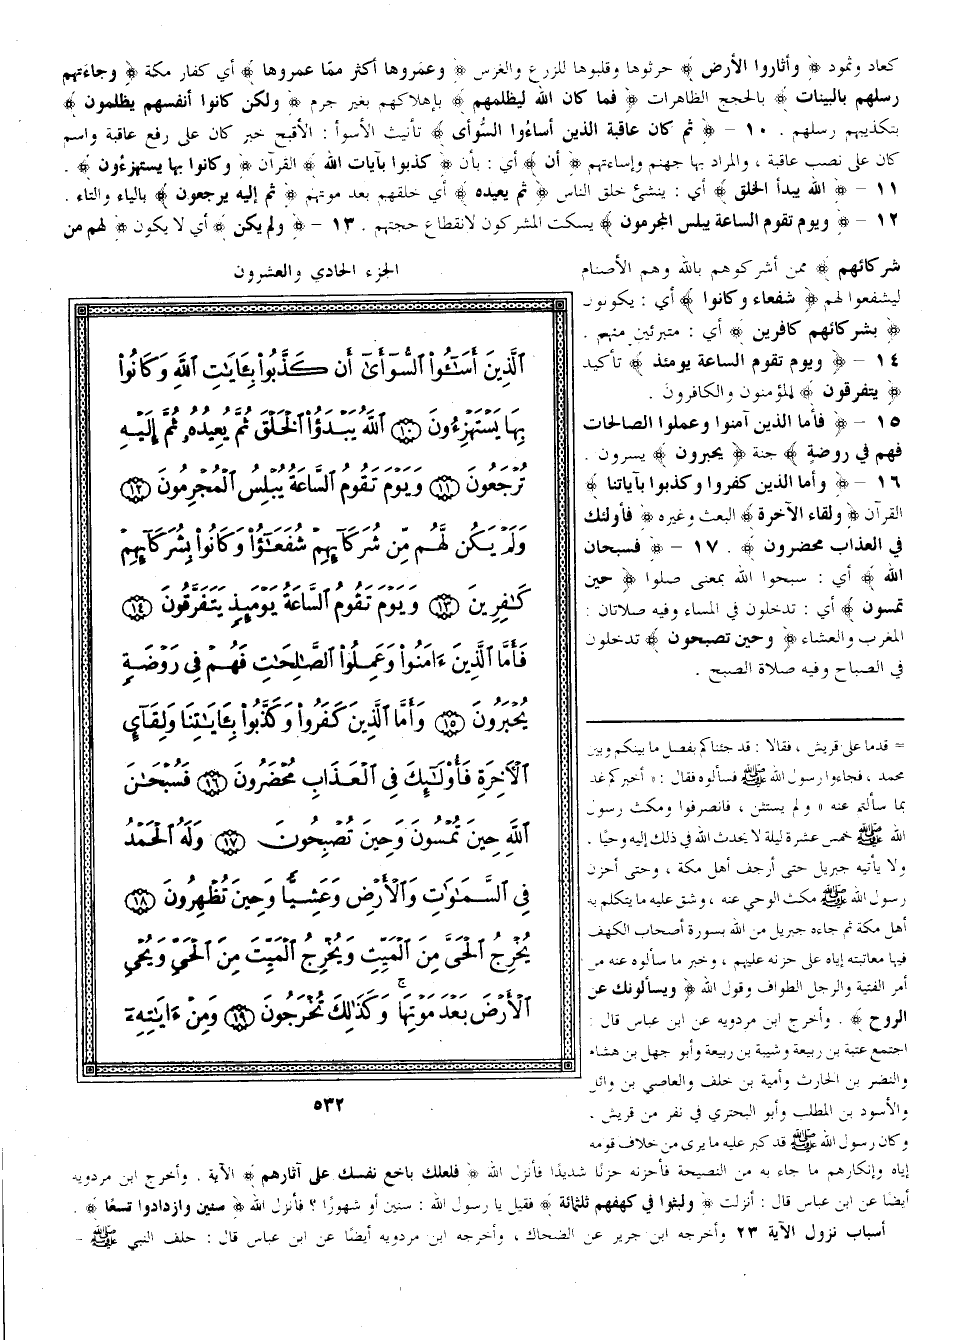 كعاد وثمود ﴿ وأثاروا الأرض ﴾ حرثوها وقلبوها للزرع والغرس ﴿ وعمروها أكثر مما عمروها ﴾ أي كفار مكة ﴿ وجاءتهم
رسلهم بالبينات ﴾ بالحجج الظاهرات ﴿ فما كان الله ليظلمهم ﴾ بإهلاكهم بغير جرم ﴿ ولكن كانوا أنفسهم يظلمون ﴾
بتكذيبهم رسلهم . ١٠ – ﴿ ثم كان عاقبة الذين أساءوا السُّوأى ﴾ تأنيث الأسوأ : الأقبح خبر كان على رفع عاقبة واسم
كان على نصب عاقبة ، والمراد بها جهنم وإساءتهم ﴿ أن ﴾ أي : بأن ﴿ كذبوا بآيات الله ﴾ القرآن ﴿ وكانوا بها يستهزءون ﴾ .
١١ – ﴿ الله يبدأ الخلق ﴾ أي : ينشئ خلق الناس ﴿ ثم يعيده ﴾ أي خلقهم بعد موتهم ﴿ ثم إليه يرجعون ﴾ بالياء والتاء .
١٢ – ﴿ ويوم تقوم الساعة يبلس المجرمون ﴾ يسكت المشركون لانقطاع حجتهم . ١٣ – ﴿ ولم يكن ﴾ أي لا يكون ﴿ لهم من
شركائهم ﴾ ممن أشركوهم بالله وهم الأصنام
ليشفعوا لهم ﴿ شفعاء وكانوا ﴾ أي : يكونون
﴿ بشركائهم كافرين ﴾ أي : متبرئين منهم .
١٤ – ﴿ ويوم تقوم الساعة يومئذ ﴾ تأكيد
﴿ يتفرقون ﴾ المؤمنون والكافرون .
١٥ – ﴿ فأما الذين آمنوا وعملوا الصالحات
فهم في روضة ﴾ جنة ﴿ يحبرون ﴾ يسرون .
١٦ – ﴿ وأما الذين كفروا وكذبوا بآياتنا ﴾
القرآن ﴿ ولقاء الآخرة ﴾ البعث وغيره ﴿ فأولئك
في العذاب محضرون ﴾ . ١٧ – ﴿ فسبحان
الله ﴾ أي : سبحوا الله بمعنى صلوا ﴿ حين
تمسون ﴾ أي : تدخلون في المساء وفيه صلاتان :
المغرب والعشاء ﴿ وحين تصبحون ﴾ تدخلون
في الصباح وفيه صلاة الصبح .
الجزء الحادي والعشرون
ٱلَّذِينَ أَسَٰٓـُٔوا۟ ٱلسُّوٓأَىٰٓ أَن كَذَّبُوا۟ بِـَٔايَٰتِ ٱللَّهِ وَكَانُوا۟
بِهَا يَسْتَهْزِءُونَ ١٠ ٱللَّهُ يَبْدَؤُا۟ ٱلْخَلْقَ ثُمَّ يُعِيدُهُۥ ثُمَّ إِلَيْهِ
تُرْجَعُونَ ١١ وَيَوْمَ تَقُومُ ٱلسَّاعَةُ يُبْلِسُ ٱلْمُجْرِمُونَ ١٢
وَلَمْ يَكُن لَّهُم مِّن شُرَكَآئِهِمْ شُفَعَٰٓؤُا۟ وَكَانُوا۟ بِشُرَكَآئِهِمْ
كَٰفِرِينَ ١٣ وَيَوْمَ تَقُومُ ٱلسَّاعَةُ يَوْمَئِذٍ يَتَفَرَّقُونَ ١٤
فَأَمَّا ٱلَّذِينَ ءَامَنُوا۟ وَعَمِلُوا۟ ٱلصَّٰلِحَٰتِ فَهُمْ فِى رَوْضَةٍ
يُحْبَرُونَ ١٥ وَأَمَّا ٱلَّذِينَ كَفَرُوا۟ وَكَذَّبُوا۟ بِـَٔايَٰتِنَا وَلِقَآئِ
ٱلْـَٔاخِرَةِ فَأُو۟لَٰٓئِكَ فِى ٱلْعَذَابِ مُحْضَرُونَ ١٦ فَسُبْحَٰنَ
ٱللَّهِ حِينَ تُمْسُونَ وَحِينَ تُصْبِحُونَ ١٧ وَلَهُ ٱلْحَمْدُ
فِى ٱلسَّمَٰوَٰتِ وَٱلْأَرْضِ وَعَشِيًّا وَحِينَ تُظْهِرُونَ ١٨
يُخْرِجُ ٱلْحَىَّ مِنَ ٱلْمَيِّتِ وَيُخْرِجُ ٱلْمَيِّتَ مِنَ ٱلْحَىِّ وَيُحْىِ
ٱلْأَرْضَ بَعْدَ مَوْتِهَا ۚ وَكَذَٰلِكَ تُخْرَجُونَ ١٩ وَمِنْ ءَايَٰتِهِۦٓ
٥٣٢
= قدما على قريش ، فقالا : قد جئناكم بفصل ما بينكم وبين
محمد ، فجاءوا رسول الله ﷺ فسألوه فقال : « أخبركم غد
بما سألتم عنه » ولم يستثن ، فانصرفوا ومكث رسول
الله ﷺ خمس عشرة ليلة لا يحدث الله في ذلك إليه وحيًا .
ولا يأتيه جبريل حتى أرجف أهل مكة ، وحتى أحزن
رسول الله ﷺ مكث الوحي عنه ، وشق عليه ما يتكلم به
أهل مكة ثم جاءه جبريل من الله بسورة أصحاب الكهف
فيها معاتبته إياه على حزنه عليهم ، وخبر ما سألوه عنه من
أمر الفتية والرجل الطواف وقول الله ﴿ ويسألونك عن
الروح ﴾ . وأخرج ابن مردويه عن ابن عباس قال :
اجتمع عتبة بن ربيعة وشيبة بن ربيعة وأبو جهل بن هشام
والنضر بن الحارث وأمية بن خلف والعاصي بن وائل
والأسود بن المطلب وأبو البحتري في نفر من قريش .
وكان رسول الله ﷺ قد كبر عليه ما يرى من خلاف قومه
إياه وإنكارهم ما جاء به من النصيحة فأحزنه حزنًا شديدًا فأنزل الله ﴿ فلعلك باخع نفسك على آثارهم ﴾ الآية . وأخرج ابن مردويه
أيضًا عن ابن عباس قال : أنزلت ﴿ ولبثوا في كهفهم ثلثمائة ﴾ فقيل يا رسول الله : سنين أو شهورًا ؟ فأنزل الله ﴿ سنين وازدادوا تسعًا ﴾ .
أسباب نزول الآية ٢٣ وأخرجه ابن جرير عن الضحاك ، وأخرجه ابن مردويه أيضًا عن ابن عباس قال : حلف النبي ﷺ =